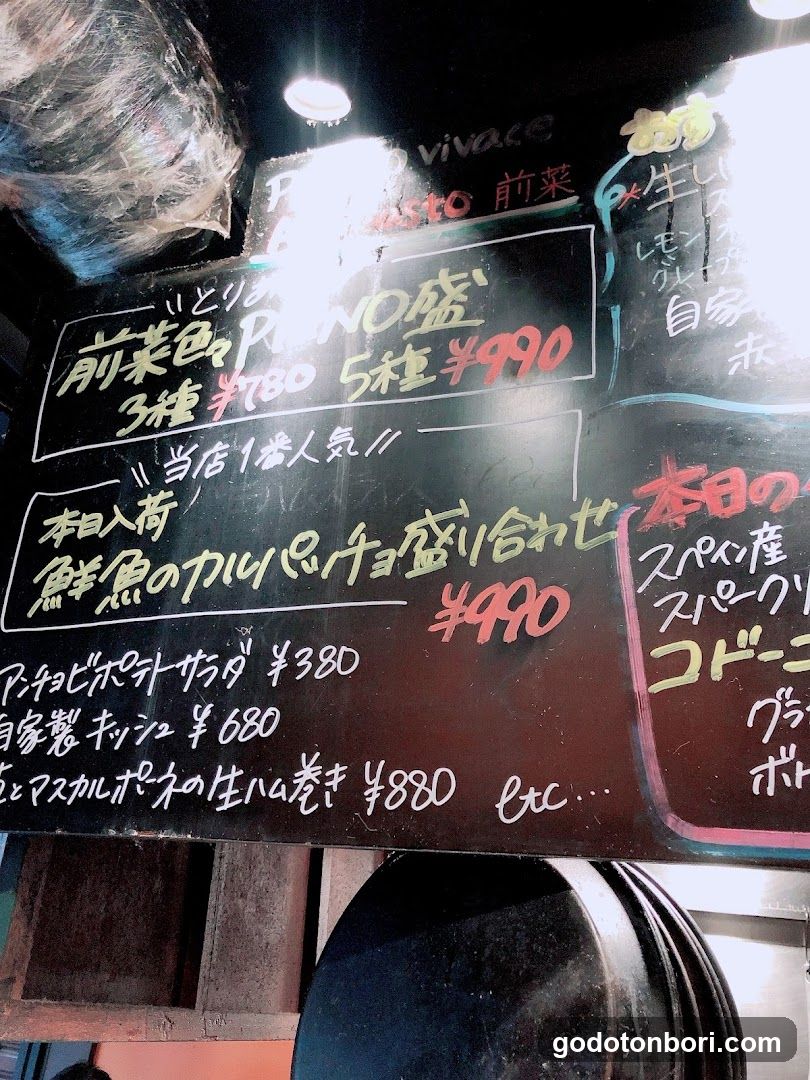 vivace
前菜
前菜色々PIANO盛
3種 ¥780 5種 ¥990
\\ 当店1番人気 //
本日入荷
鮮魚のカルパッチョ盛り合わせ
¥990
アンチョビポテトサラダ ¥380
自家製キッシュ ¥680
とマスカルポーネの生ハム巻き ¥880 etc…
おすす
*生し
レモン
グレープ
自家
赤
本日の
スペイン産
スパークリ
コドーニ
グラ
ボト
godotonbori.com